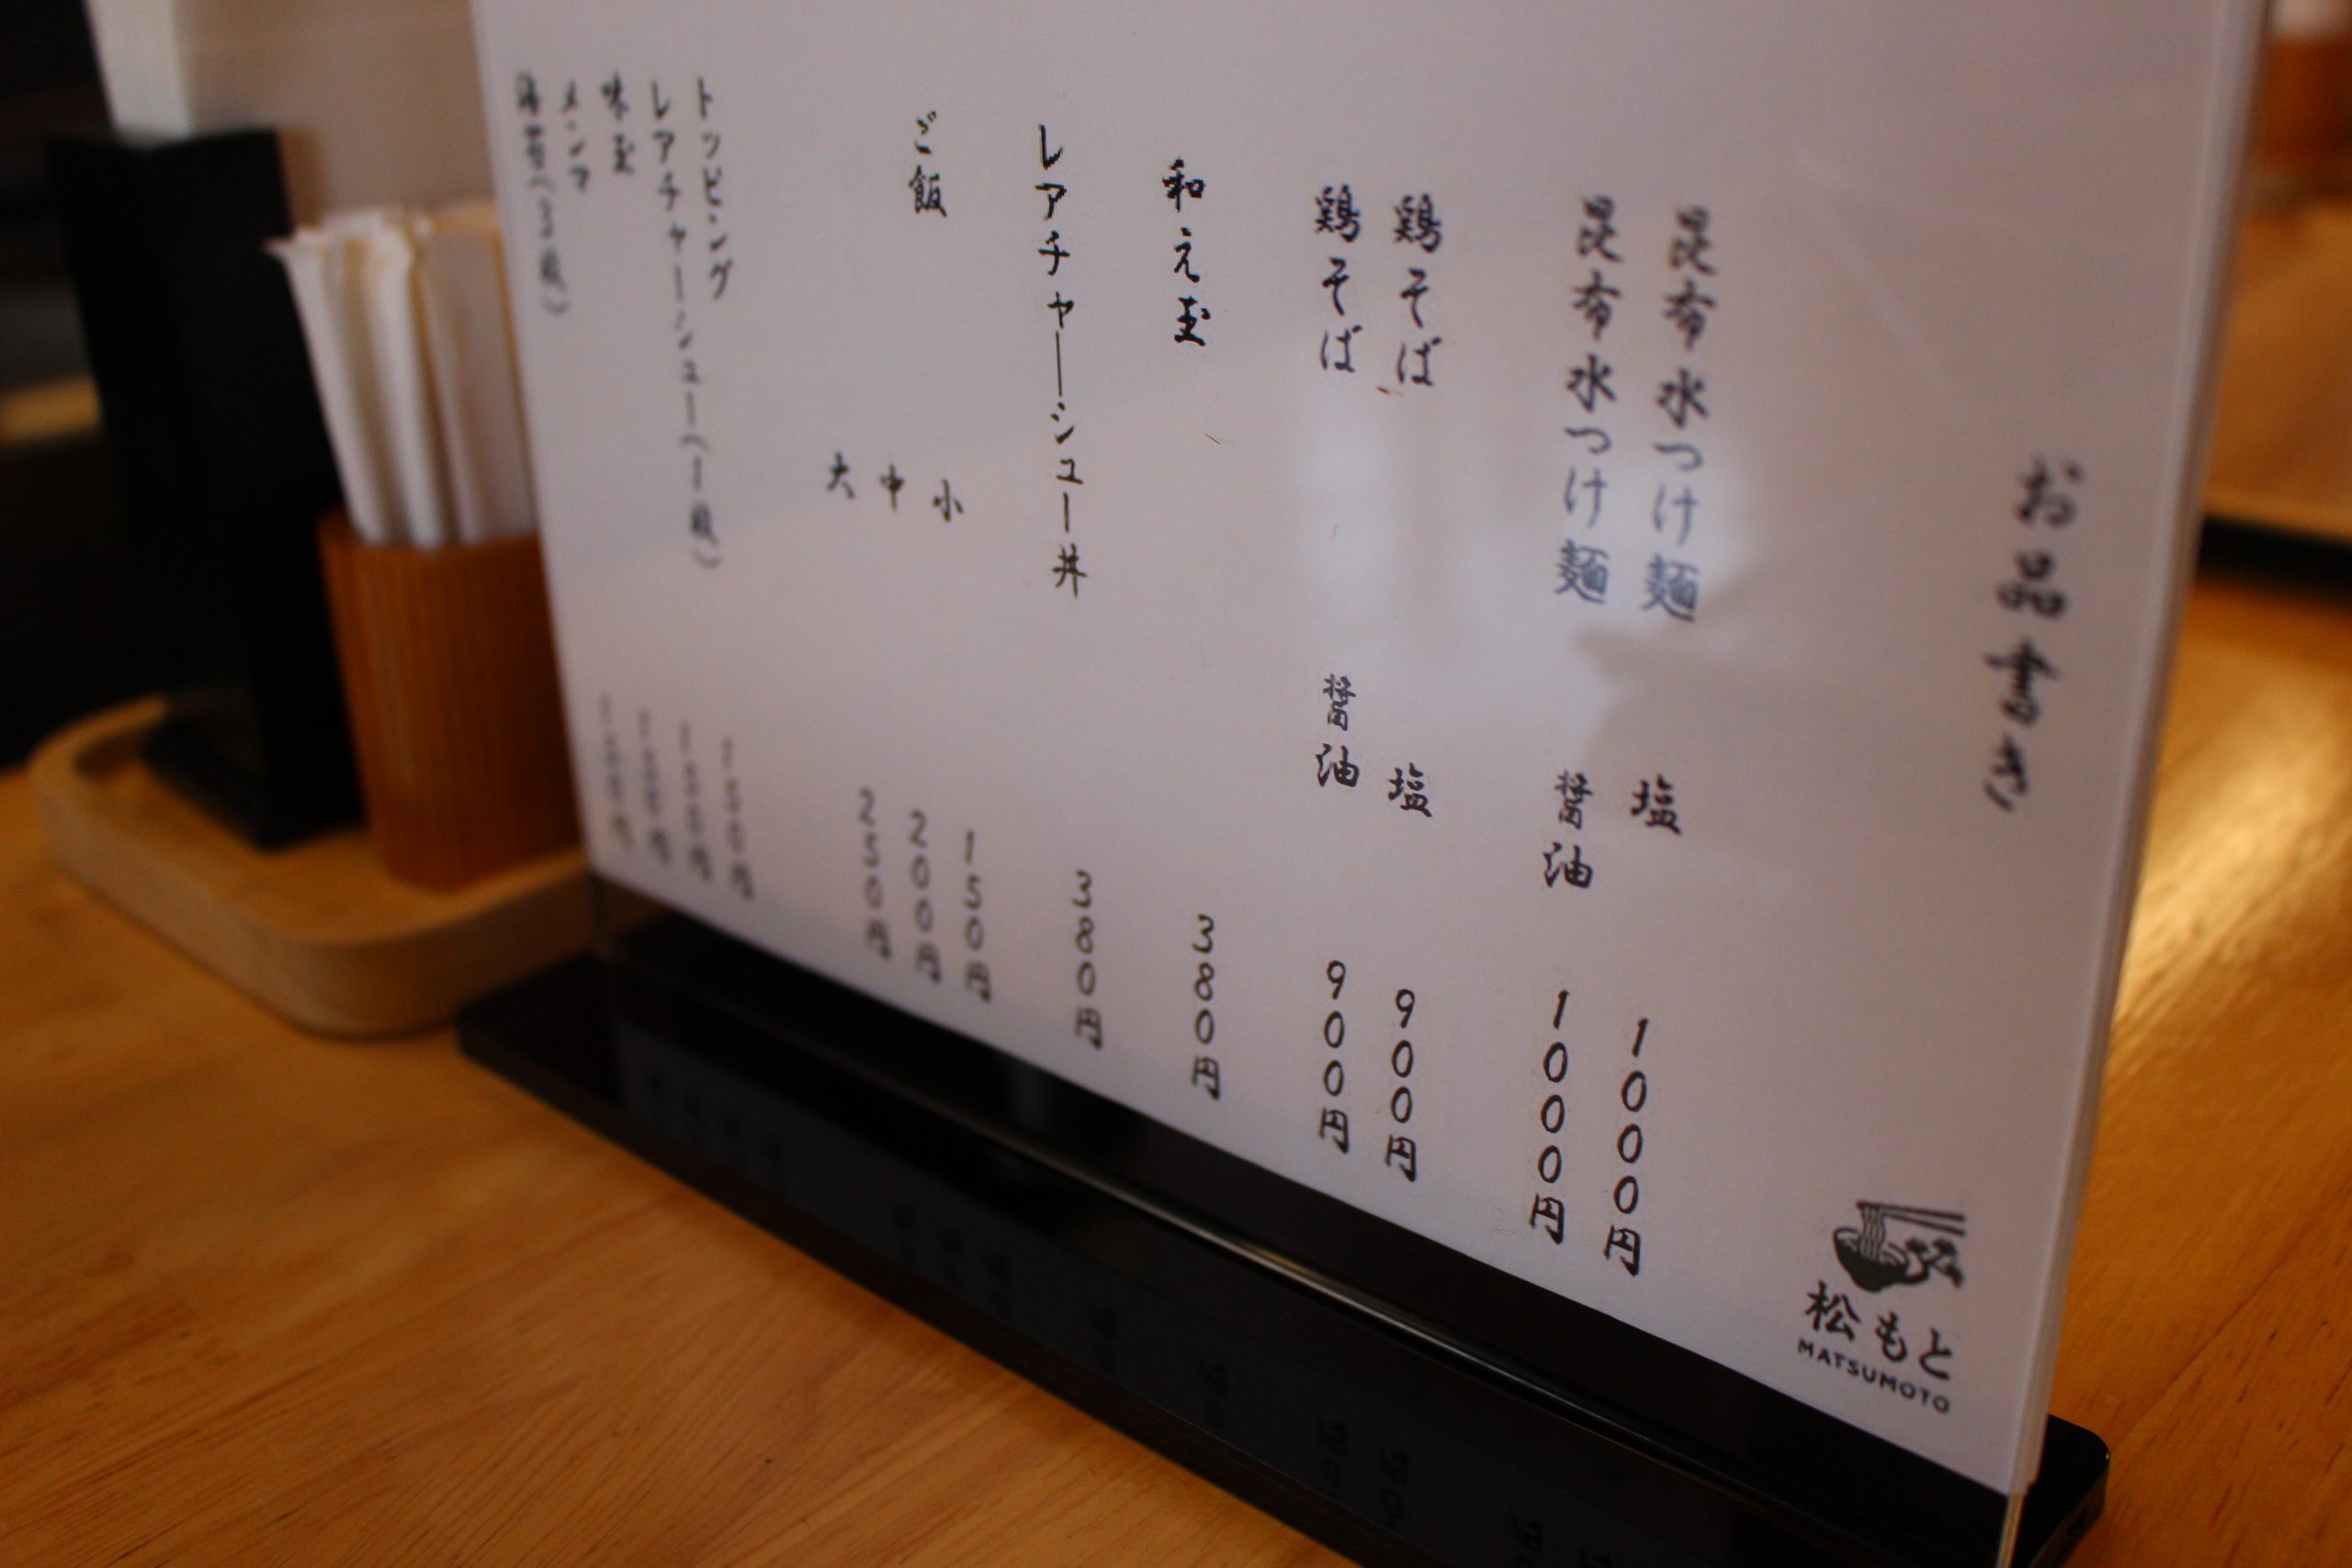 お品書き
昆布水つけ麺 塩 1000円
昆布水つけ麺 醤油 1000円
鶏そば 塩 900円
鶏そば 醤油 900円
和え玉 380円
レアチャーシュー丼 380円
ご飯 小 150円
中 200円
大 250円
トッピング
レアチャーシュー(1枚)
味玉
メンマ
海苔
松もと
MATSUMOTO